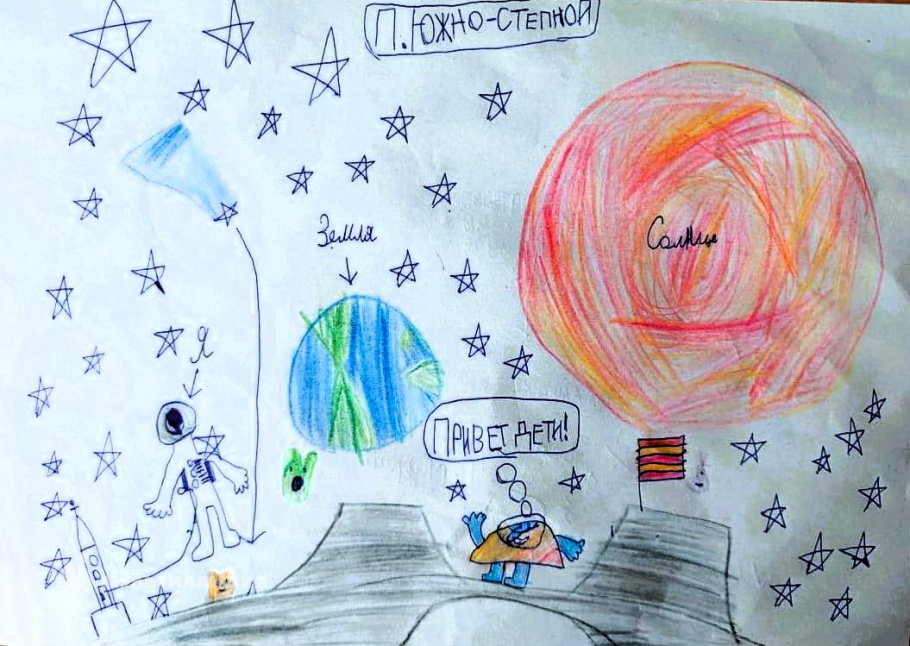 П.ЮЖНО-СТЕПНОЙ
Земля
Солнце
Я
ПРИВЕТ ДЕТИ!